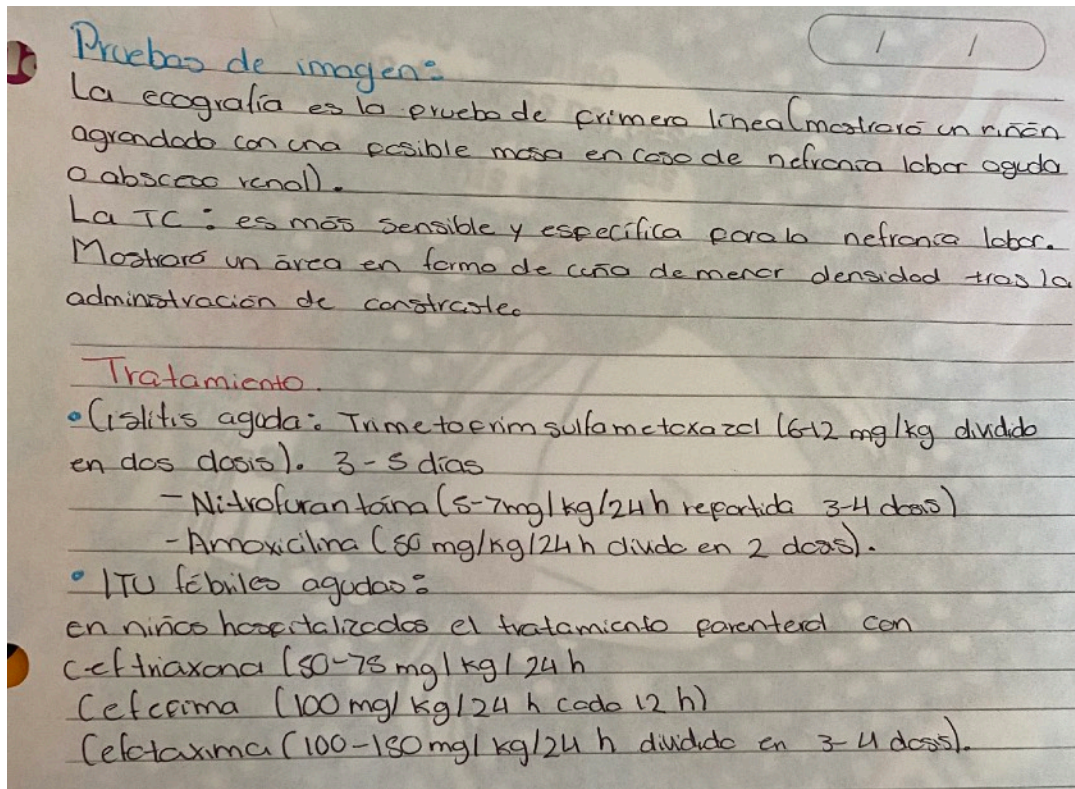 Pruebas de imagen:
La ecografía es la prueba de primera línea (mostrará un riñón
agrandado con una posible masa en caso de nefronia lobar aguda
o absceso renal).
La TC: es más sensible y específica para la nefronia lobar.
Mostrará un área en forma de cuña de menor densidad tras la
administración de constraste.
Tratamiento.
• Cistitis aguda: Trimetoprim sulfametoxazol (6-12 mg/kg dividido
en dos dosis). 3-5 días
- Nitrofurantoína (5-7mg/kg/24h repartida 3-4 dosis)
- Amoxicilina (50 mg/kg/24h divido en 2 dosis).
• ITU febriles agudas:
en niños hospitalizados el tratamiento parenteral con
ceftriaxona (50-75 mg/kg/24h
Cefepima (100 mg/kg/24 h cada 12 h)
Cefotaxima (100-150 mg/kg/24 h dividido en 3-4 dosis).